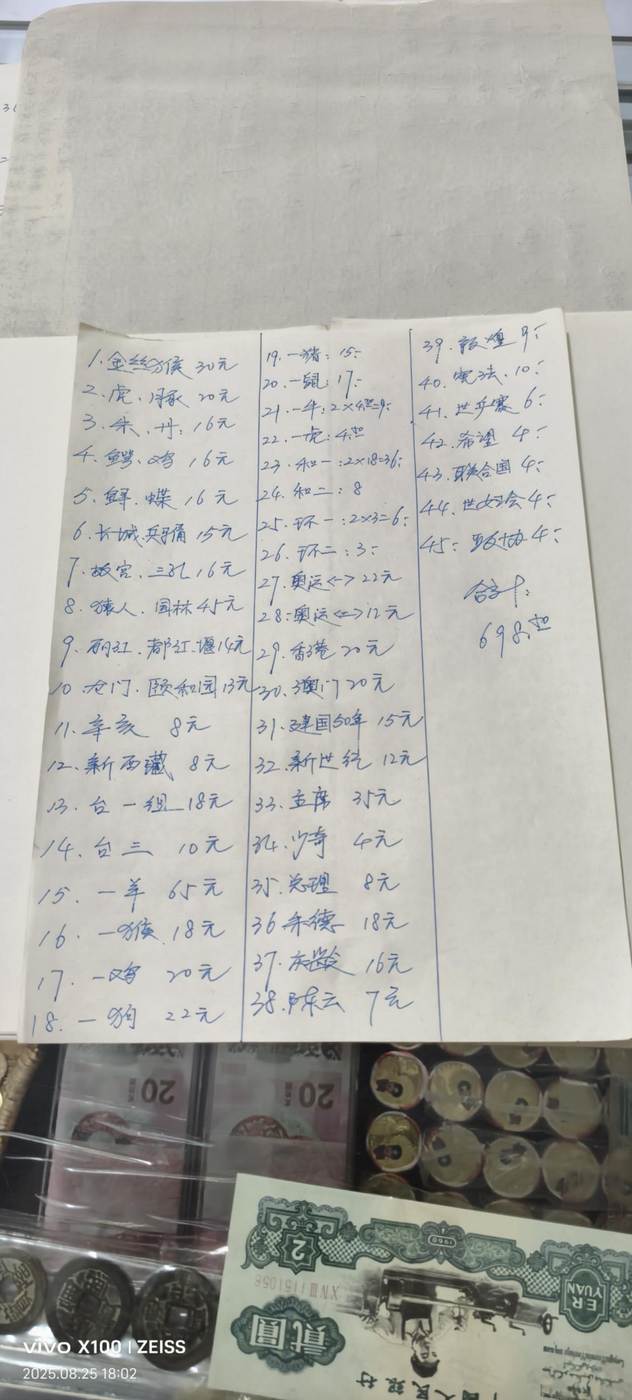 1. 金丝猴 30元
2. 虎、豚 20元
3. 朱、丹 16元
4. 鳄、鸡 16元
5. 鲟、蝶 16元
6. 长城、兵马俑 15元
7. 故宫、三孔 16元
8. 猿人、园林 45元
9. 丽江、都江堰 14元
10. 龙门、颐和园 13元
11. 辛亥 8元
12. 新西藏 8元
13. 台一组 18元
14. 台三 10元
15. 一羊 65元
16. 一猴 18元
17. 一鸡 20元
18. 一狗 22元
19. 一猪: 15:
20. 一鼠: 17:
21. 一牛: 2×4.5=9:
22. 一虎: 4.5
23. 和一: 2×18=36:
24. 和二: 8
25. 环一: 2×3=6:
26. 环二: 3:
27. 奥运<一> 22元
28. 奥运<二> 12元
29. 香港 20元
30. 澳门 20元
31. 建国50年 15元
32. 新世纪 12元
33. 主席 35元
34. 少奇 4元
35. 总理 8元
36. 朱德 18元
37. 庆龄 16元
38. 陈云 7元
39. 敦煌 9:
40. 宪法 10:
41. 世乒赛 6:
42. 希望 4:
43. 联合国 4:
44. 世妇会 4:
45. 政协 4:
合计:
698.5
20
20
2
1960
XN III 1151058
贰圆
ER YUAN
人民银行
vivo X100 | ZEISS
2025.08.25 18:02